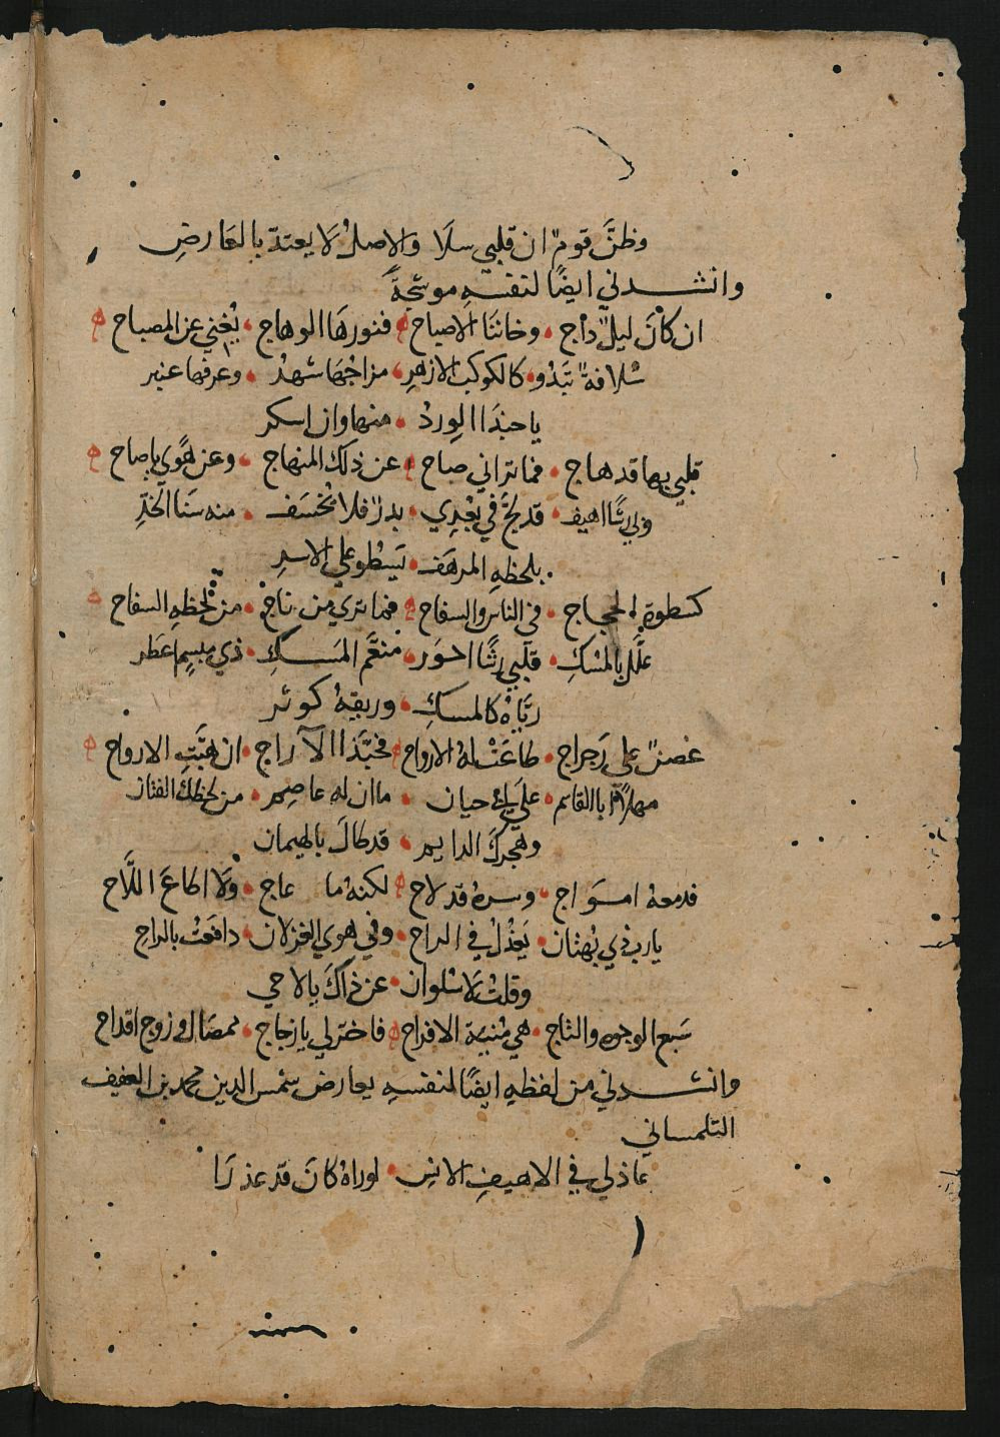 وظنَّ قومٌ ان قلبي سلَا والاصلُ لَا يعتدّ بالعَارضِ
وانشدني ايضًا لنفسهِ موشحةً
ان كانَ ليلٌ داج • وخاننَا الاصباح فنورهَا الوهاج • يُغني عن المصباح
سُلافةٌ تَبدُو • كالكوكب الازهرِ • مزاجُهَا شهدُ • وعرفها عنبر
ياحبذَا الوردُ • منها وان اسكر
قلبي بها قد هاج • فما تراني صاح عن ذلك المنهاج • وعن هَوًي ياصاح
ولي رشًا اهيف • قد لجَّ في بُعْدِي • بدرٌ فلا يُخسَف • منه سَنَا الخدِّ
بلحظهِ المرهَف • يَسْطُو علي الاسدِ
كسطوة الحجاج • في الناس والسفاح فما تري من ناج • من لحظهِ السفاح
علَّل بالمسْكِ • قلبي رشًا احوَر • منعَّم المَسكِ • ذي مبسمٍ اعطر
ريَّاهُ كالمسكِ • وريقهُ كوثر
غصنٌ علي رَجراج • طاعَتْ لهُ الارواح فحبَّذَا الآراج • ان هَبَّتِ الارواح
مهلًا ابا القاسم • علي حيان • ما ان له عاصِم • من لحظكَ الفتان
وهجركَ الدايم • قد طالَ بالهيمان
فدمعهُ امواج • وسرهُ قد لاح لكنهُ ما عاج • ولَا اطاعَ اللَّاح
يارب ذي بُهتان • يَعْذُلُ في الراح • وفي هوي الغزلان • دافعتُ بالراح
وقلتُ لَا سُلوان • عن ذاكَ يالاحي
سَبع الوجوه والتاج • هي مُنية الافراح فاختر لي يازجاج • قمصال وزوج اقداح
وانشدني من لفظهِ ايضًا لنفسهِ يعارض شمس الدين محمد بن العفيف
التلمساني
عاذلي في الاهيفِ الانِس • لوراهُ كانَ قد عذرَا